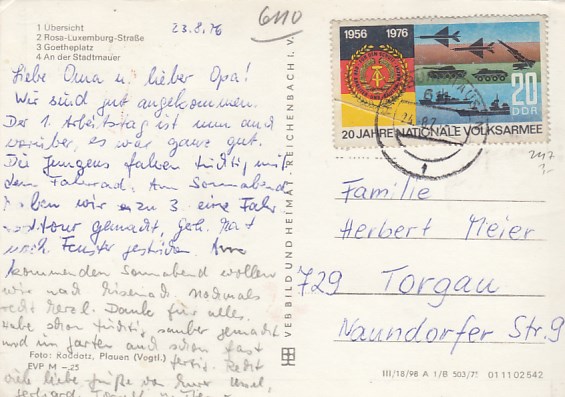 1 Übersicht
2 Rosa-Luxemburg-Straße
3 Goetheplatz
4 An der Stadtmauer
23.8.76
6110
Liebe Oma u. lieber Opa!
Wir sind gut angekommen.
Der 1. Arbeitstag ist nun auch
vorüber, es war ganz gut.
Die Jungens fahren tüchtig mit
dem Fahrrad. Am Sonnabend
haben wir zu 3. eine Fahr
radtour gemacht, Gerh. hat
noch Fenster gestrichen. Am
kommenden Sonnabend wollen
wir nach nochmals
recht herzl. Danke für alles.
habe schon tüchtig sauber gemacht
und im Garten auch schon fast
fertig. Recht
viele liebe Grüße von Eurer
Foto: Kaddatz, Plauen (Vogtl.)
EVP M –25
VEB BILD UND HEIMAT REICHENBACH I. V.
1956 1976
20
DDR
20 JAHRE NATIONALE VOLKSARMEE
Familie
Herbert Meier
729 Torgau
Naundorfer Str. 9
III/18/98 A 1/B 503/75 011102542